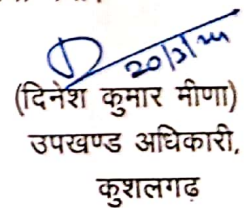 20/3/
(दिनेश कुमार मीणा)
उपखण्ड अधिकारी,
कुशलगढ़